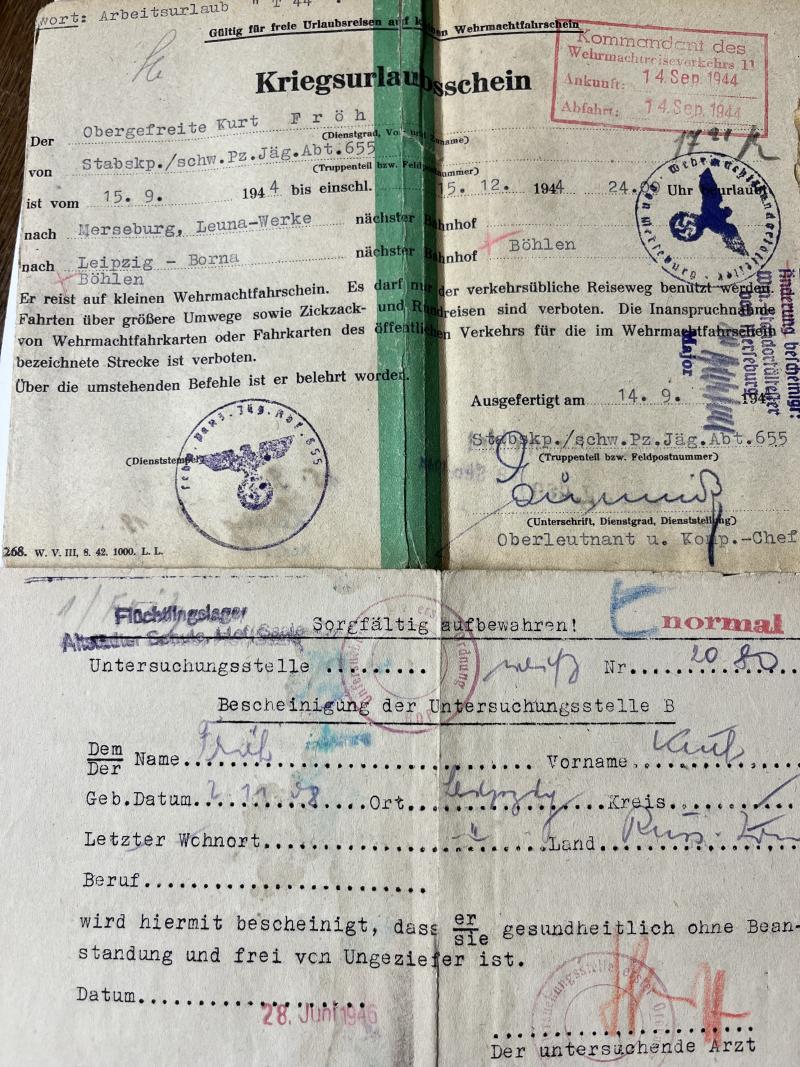 wort: Arbeitsurlaub "T 44"
Gültig für freie Urlaubsreisen auf kleinen Wehrmachtfahrschein
Kommandant des
Wehrmachtreiseverkehrs 11
Ankunft: 14. Sep. 1944
Abfahrt: 14. Sep. 1944
Kriegsurlaubsschein
Der Obergefreite Kurt Fröh
(Dienstgrad, Vor- und Zuname)
von Stabskp./schw.Pz.Jäg.Abt.655
(Truppenteil bzw. Feldpostnummer)
ist vom 15. 9. 1944 bis einschl. 15. 12. 1944 24.00 Uhr beurlaubt
nach Merseburg, Leuna-Werke nächster Bahnhof
nach Leipzig - Borna nächster Bahnhof Böhlen
Böhlen
Er reist auf kleinen Wehrmachtfahrschein. Es darf nur der verkehrsübliche Reiseweg benutzt werden.
Fahrten über größere Umwege sowie Zickzack- und Rundreisen sind verboten. Die Inanspruchnahme
von Wehrmachtfahrkarten oder Fahrkarten des öffentlichen Verkehrs für die im Wehrmachtfahrschein
bezeichnete Strecke ist verboten.
Über die umstehenden Befehle ist er belehrt worden.
Änderung bescheinigt:
Wehrm. Standortältester
Merseburg
Major
Ausgefertigt am 14. 9. 194
Stabskp./schw.Pz.Jäg.Abt.655
(Truppenteil bzw. Feldpostnummer)
(Dienststempel)
(Unterschrift, Dienstgrad, Dienststellung)
Oberleutnant u. Komp.-Chef
268. W. V. III, 8. 42. 1000. L. L.
Flüchtlingslager
Altstädter Schule, Hof/Saale
Sorgfältig aufbewahren! normal
Untersuchungsstelle ........ Nr. 20 80
Bescheinigung der Untersuchungsstelle B
Dem
Der Name Fröh Vorname Kurt
Geb.Datum 2.11.08 Ort Leipzig Kreis
Letzter Wohnort Land Russ. Zone
Beruf
wird hiermit bescheinigt, dass er
sie gesundheitlich ohne Bean-
standung und frei von Ungeziefer ist.
Datum 28. Juni 1946
Der untersuchende Arzt